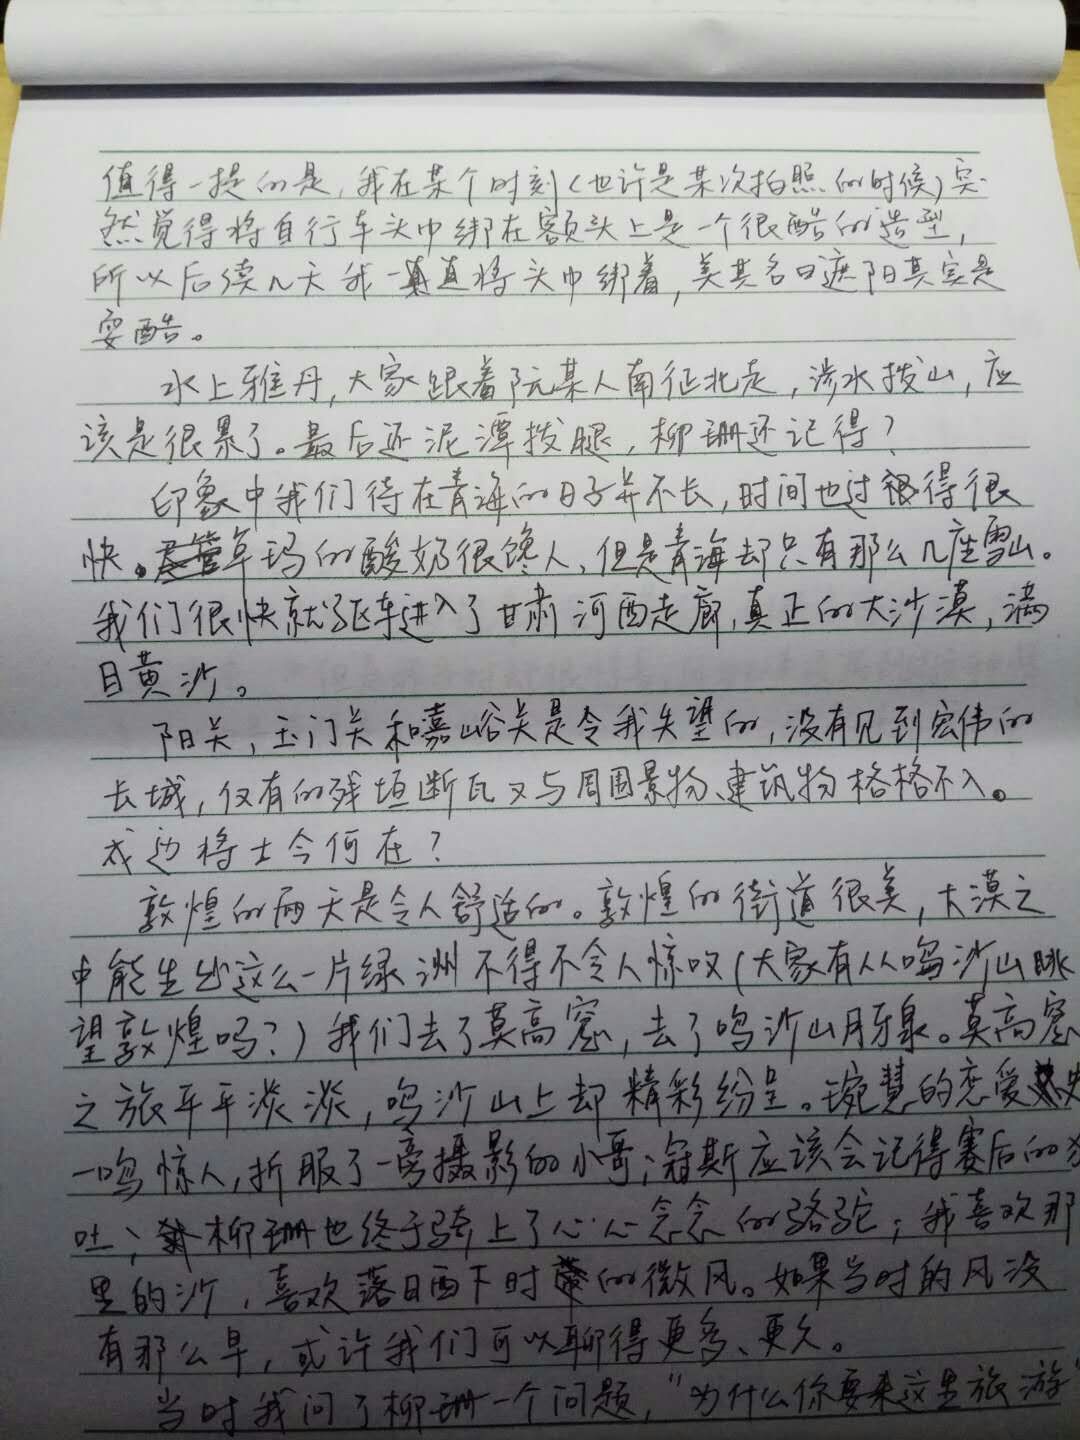 值得一提的是,我在某个时刻(也许是某次拍照的时候)突
然觉得将自行车头巾绑在额头上是一个很酷的造型,
所以后续几天我一直将头巾绑着,美其名曰遮阳其实是
耍酷。
水上雅丹,大家跟着阮某人南征北走,涉水拔山,应
该是很累了。最后还泥潭拔腿,柳珊还记得?
印象中我们待在青海的日子并不长,时间也过得很
快。卓玛的酸奶很馋人,但是青海却只有那么几座雪山。
我们很快就驱车进入了甘肃河西走廊,真正的大沙漠,满
目黄沙。
阳关,玉门关和嘉峪关是令我失望的,没有见到宏伟的
长城,仅有的残垣断瓦又与周围景物、建筑物格格不入。
戍边将士今何在?
敦煌的两天是令人舒适的。敦煌的街道很美,大漠之
中能生出这么一片绿洲不得不令人惊叹(大家有从鸣沙山眺
望敦煌吗?)我们去了莫高窟,去了鸣沙山月牙泉。莫高窟
之旅平平淡淡,鸣沙山上却精彩纷呈。琬慧的恋爱史
一鸣惊人,折服了一旁摄影的小哥;冠斯应该会记得赛后的
吐;柳珊也终于骑上了心心念念的骆驼;我喜欢那
里的沙,喜欢落日西下时的微风。如果当时的风没
有那么早,或许我们可以聊得更多、更久。
当时我问了柳珊一个问题,"为什么你要来这里旅游"